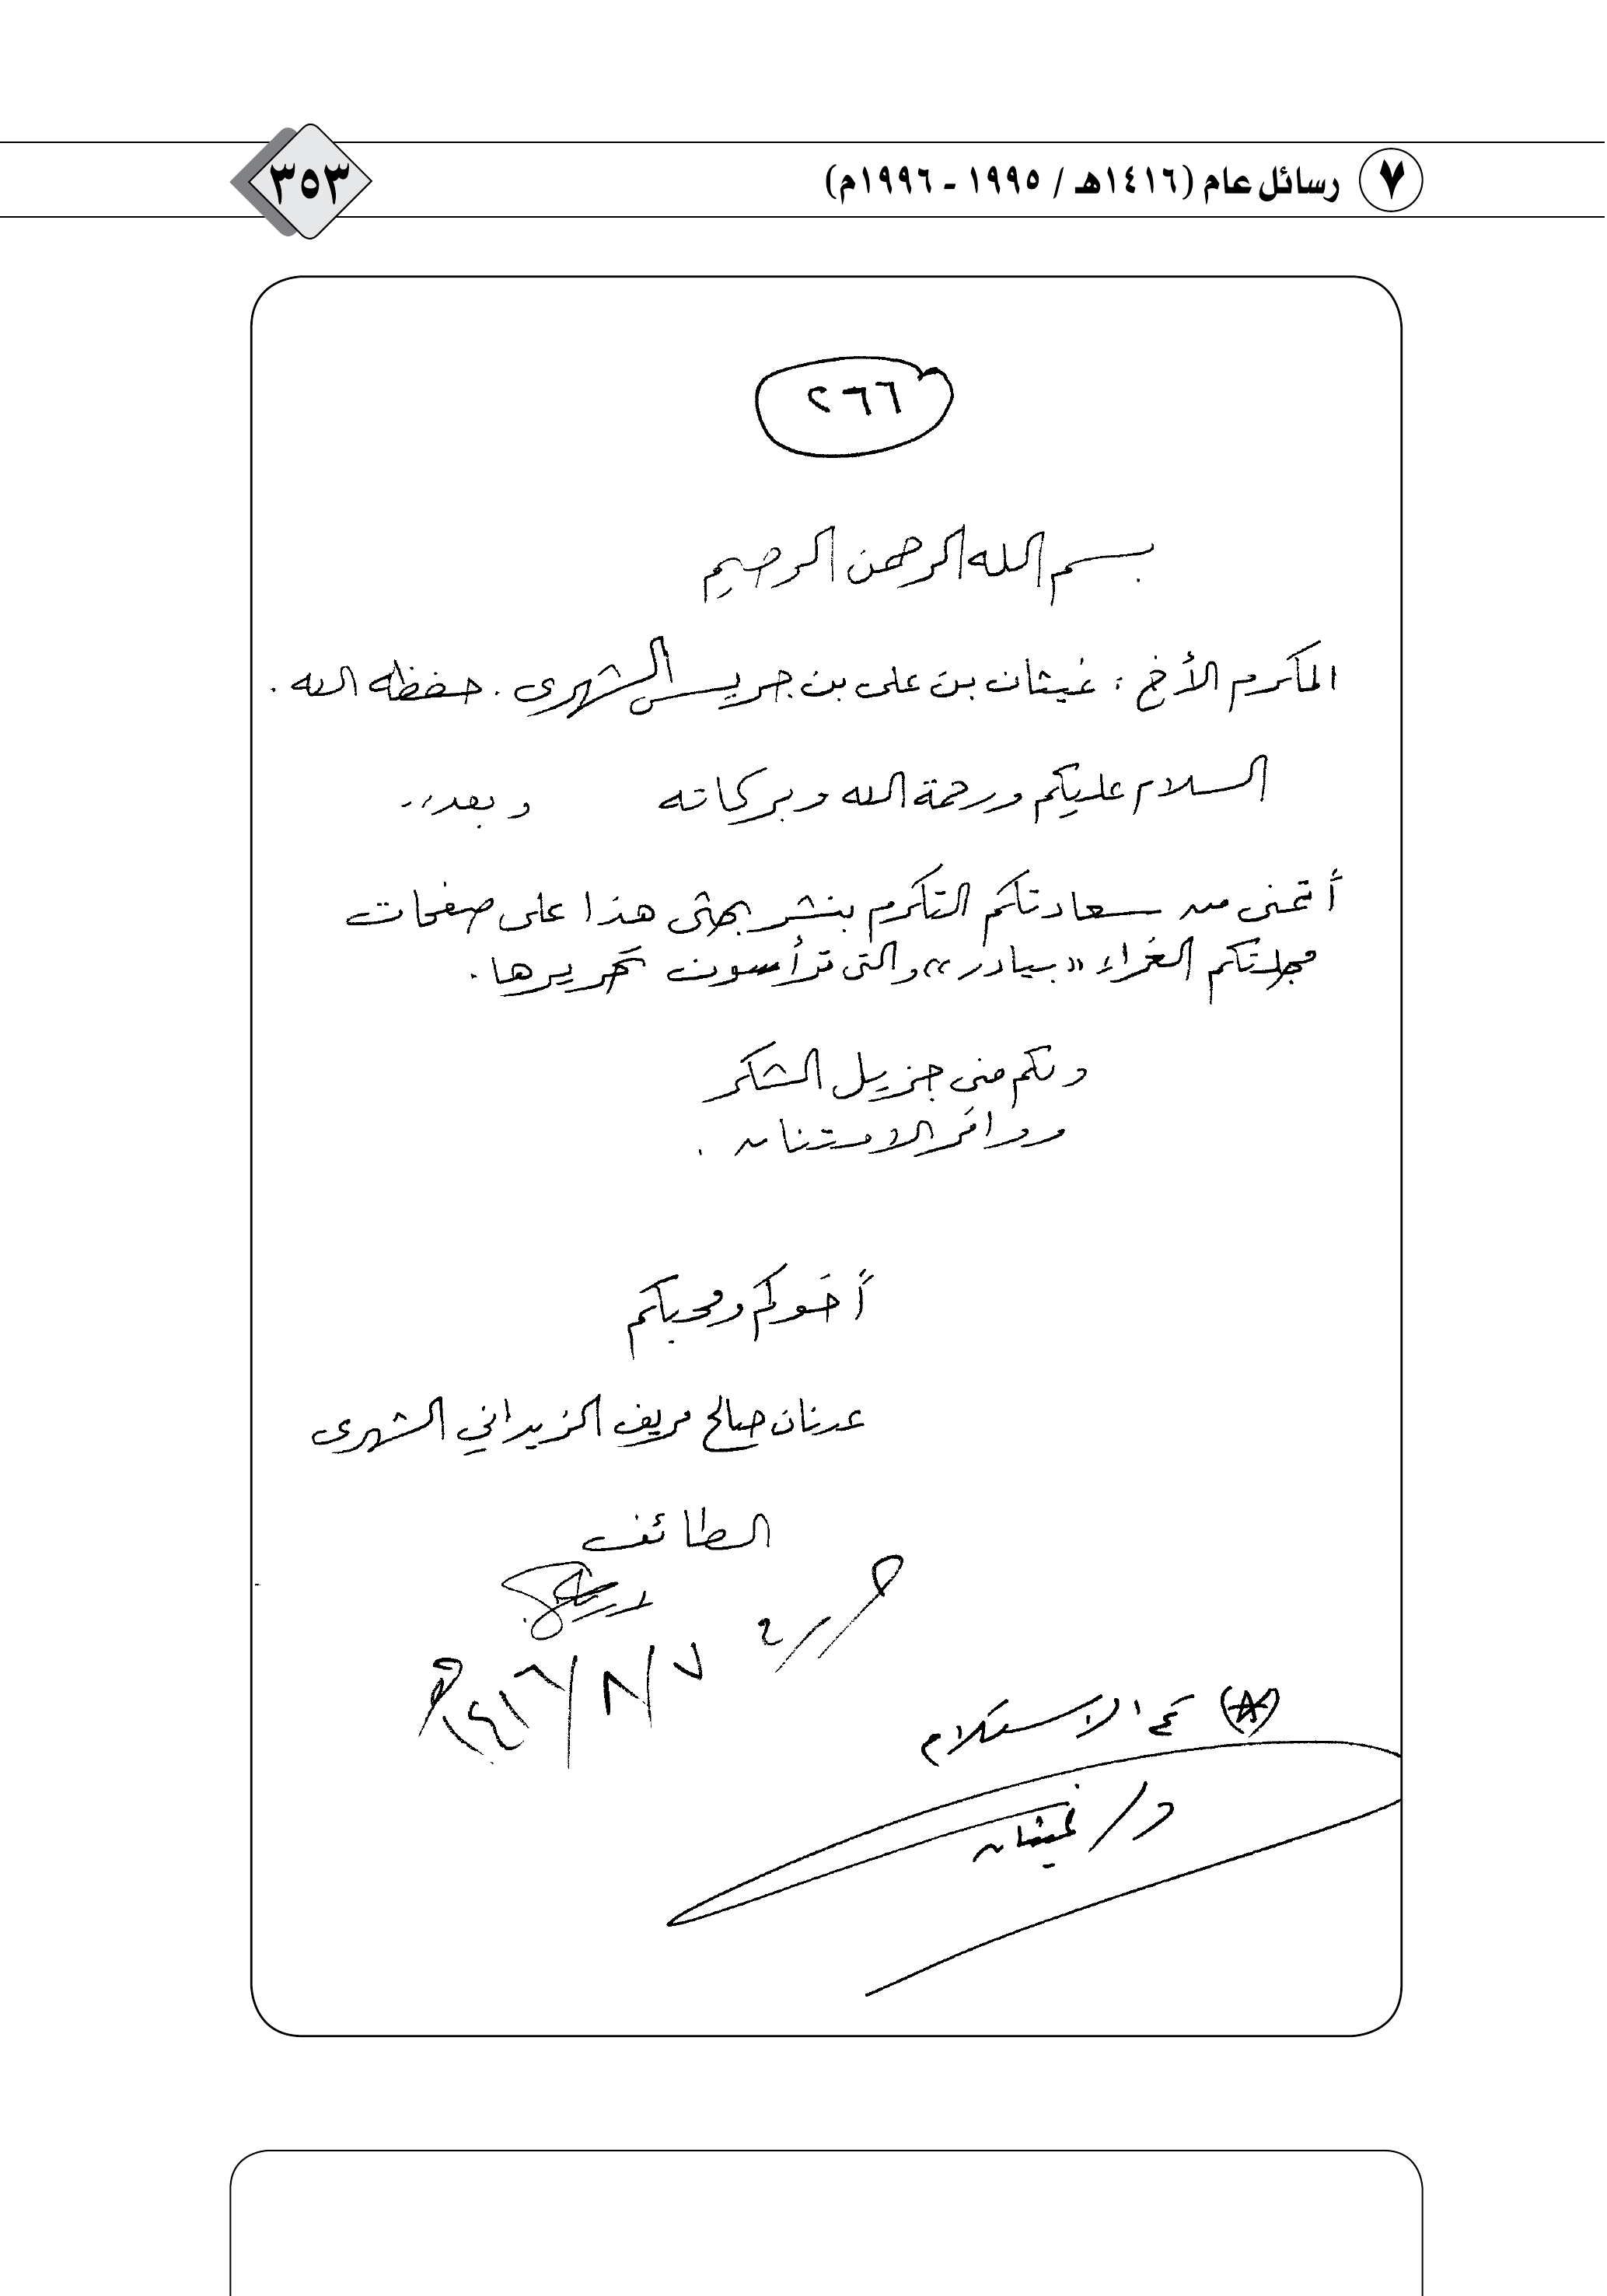 ٧ رسائل عام (١٤١٦هـ / ١٩٩٥ - ١٩٩٦م)
٣٥٣
٢٦٦
بسم الله الرحمن الرحيم
المكرم الأخ : غيثان بن على بن جريس الشهرى . حفظه الله .
السلام عليكم ورحمة الله وبركاته وبعد ،،
أتمنى من سعادتكم التكرم بنشر بحثى هذا على صفحات
مجلتكم الغراء «بيادر» والتى ترأسون تحريرها .
ولكم منى جزيل الشكر
ووافر الامتنان .
أخوكم ومحبكم
عدنان صالح الزيداني الشهرى
الطائف
٧/٨/١٤١٦هـ
تم الاستلام
د/ غيثان